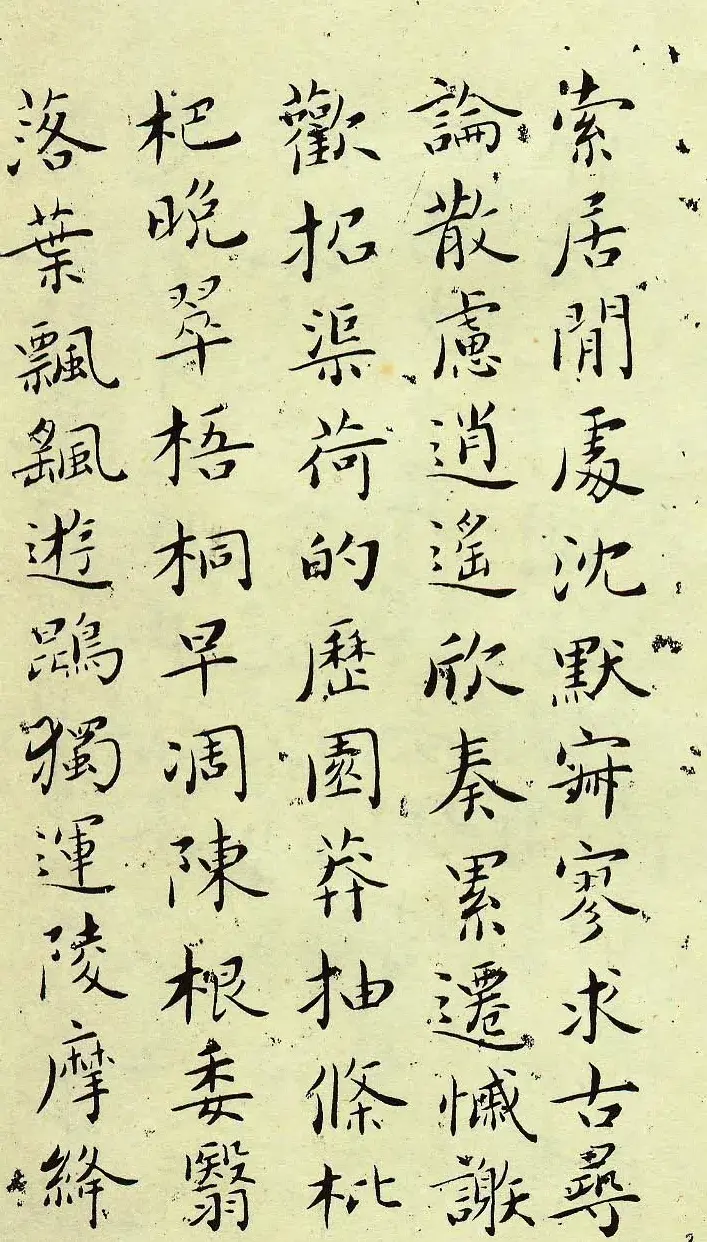 索居閒處沈默寂寥求古尋
論散慮逍遙欣奏累遣慽謝
歡招渠荷的歷園莽抽條枇
杷晚翠梧桐早凋陳根委翳
落葉飄颻遊鵾獨運陵摩絳